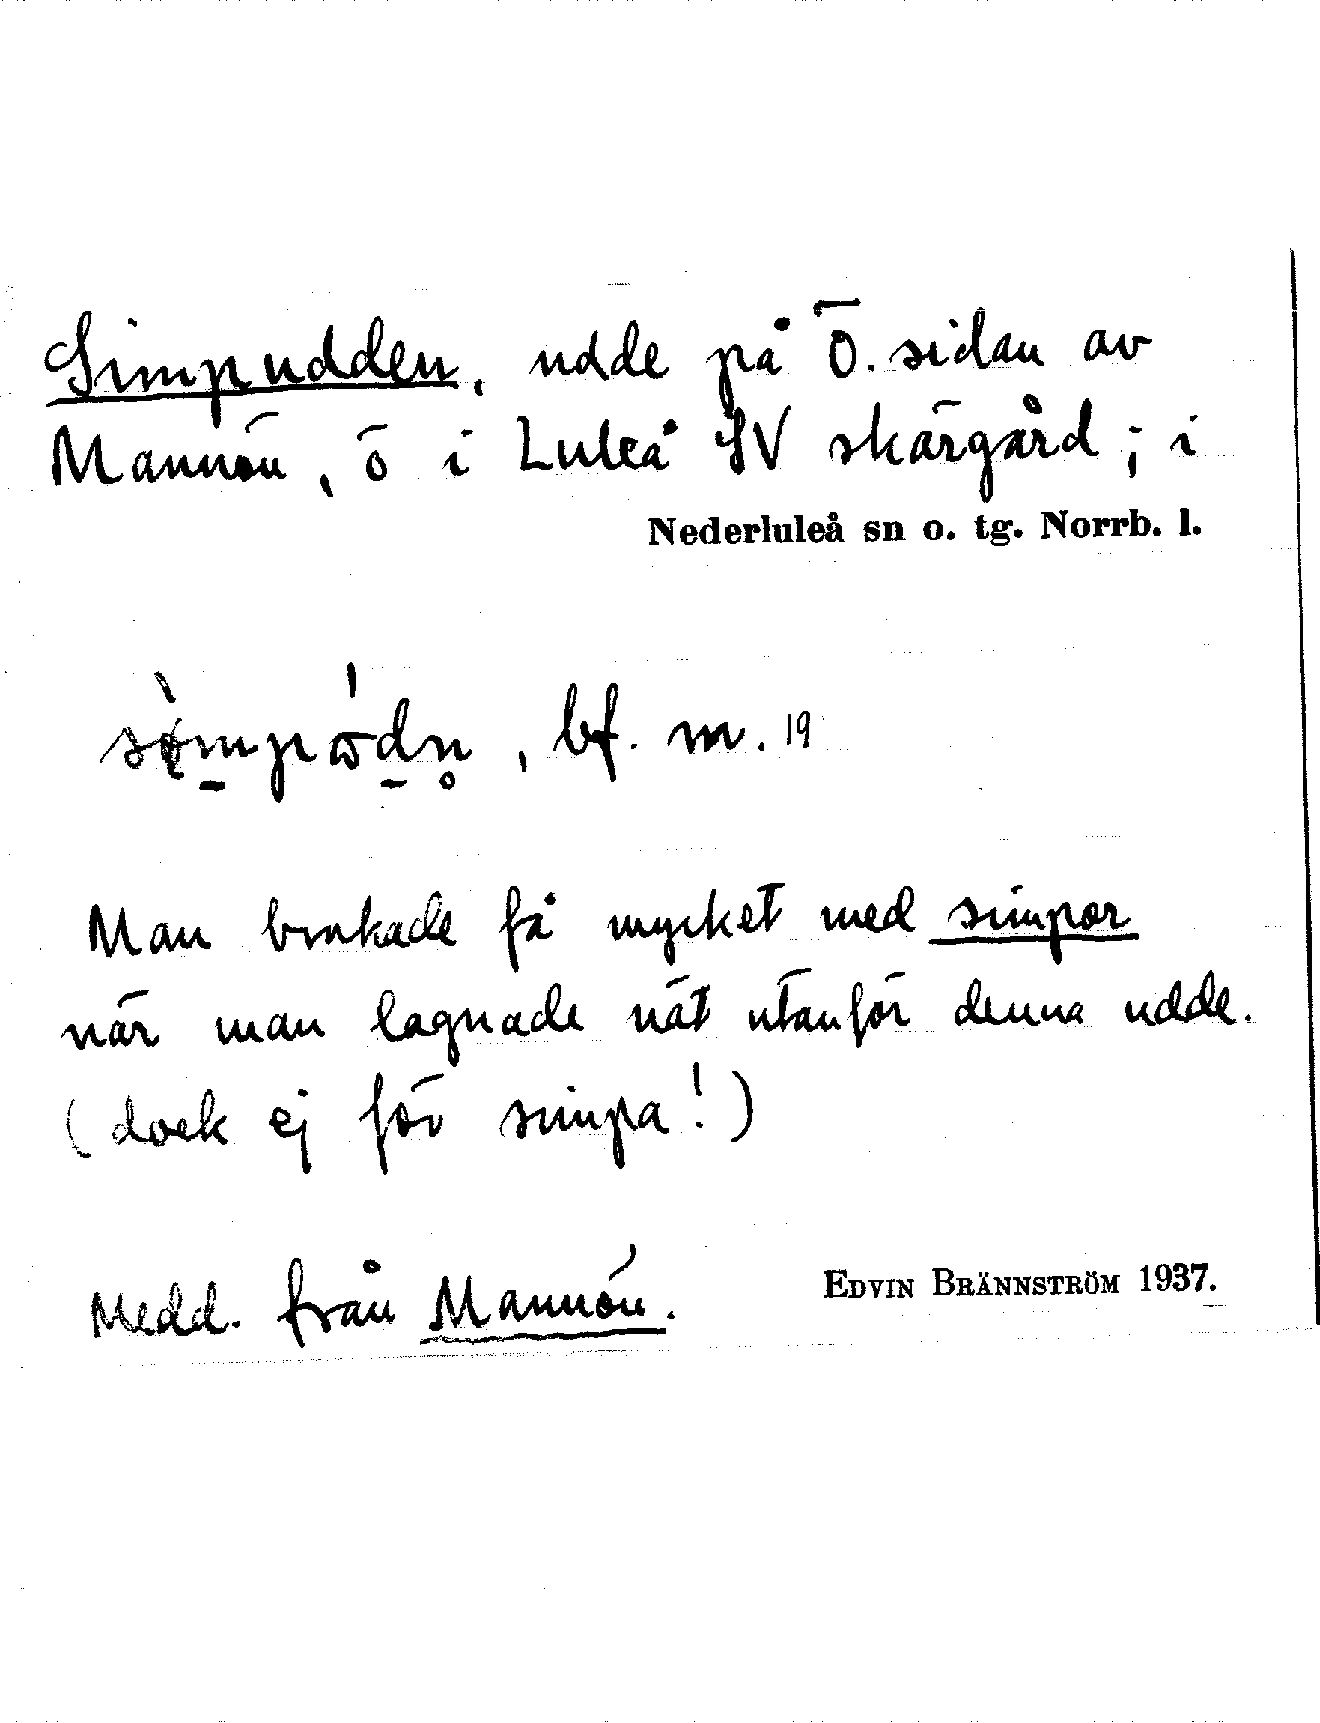 Simpudden, udde på Ö. sidan av
Mannön, ö i Luleå SV skärgård; i
Nederluleå sn o. tg. Norrb. l.
, bf. m. 19
Man brukade få mycket med simpor
när man lagnade nät utanför denna udde.
(dock ej för simpa!)
Medd. från Mannön. EDVIN BRÄNNSTRÖM 1937.